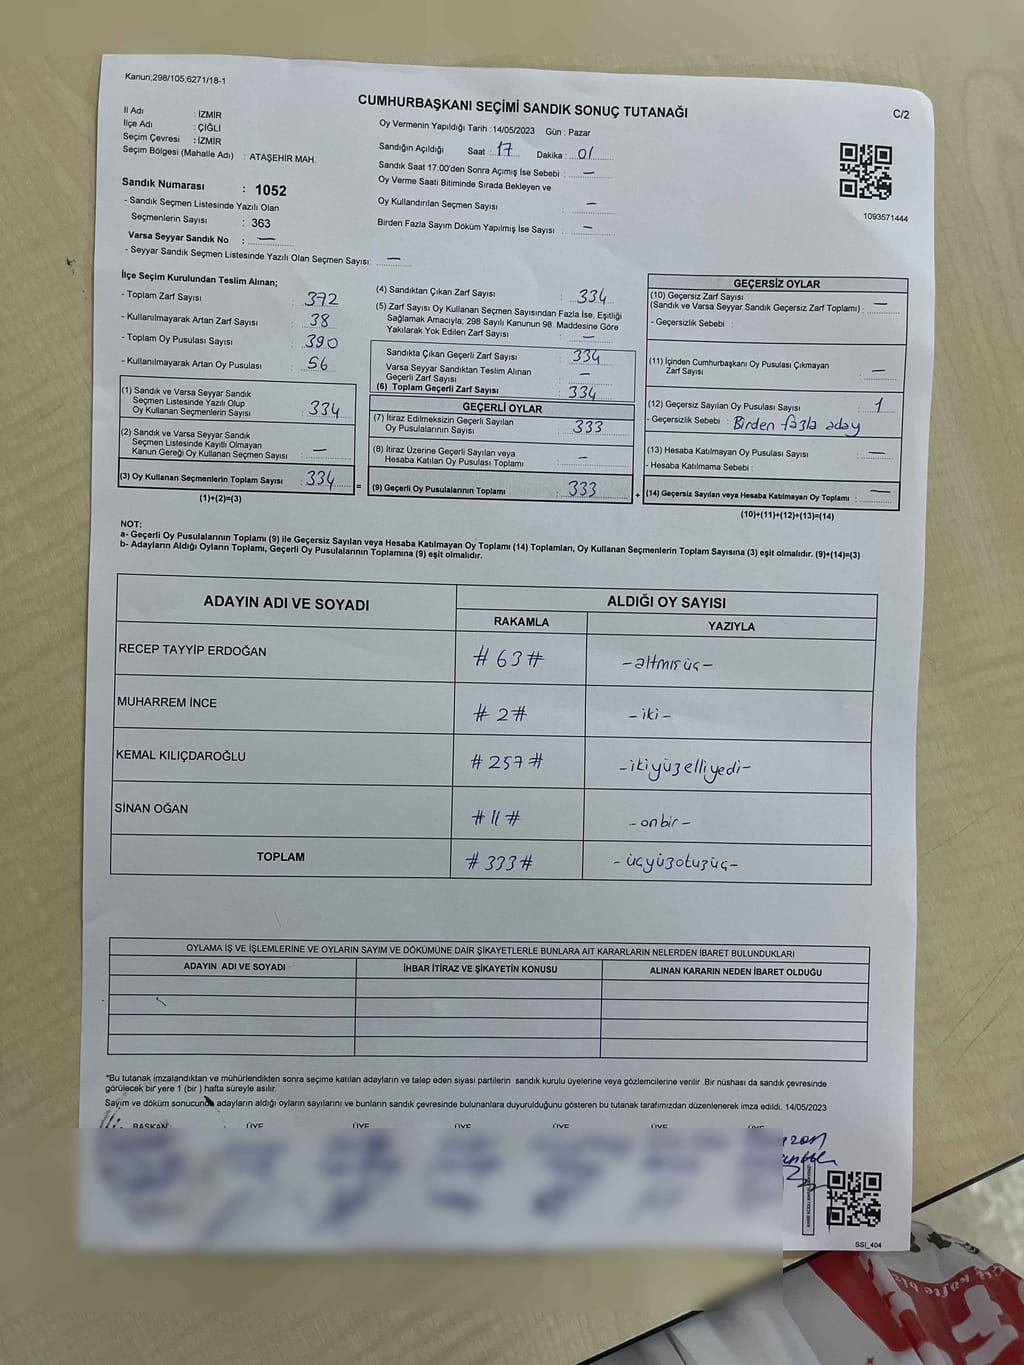 Kanun;298/105;6271/18-1
CUMHURBAŞKANI SEÇİMİ SANDIK SONUÇ TUTANAĞI
C/2
İl Adı : İZMİR
İlçe Adı : ÇİĞLİ
Seçim Çevresi : İZMİR
Seçim Bölgesi (Mahalle Adı) : ATAŞEHİR MAH.
Sandık Numarası : 1052
- Sandık Seçmen Listesinde Yazılı Olan
Seçmenlerin Sayısı : 363
Varsa Seyyar Sandık No : —
- Seyyar Sandık Seçmen Listesinde Yazılı Olan Seçmen Sayısı: —
Oy Vermenin Yapıldığı Tarih :14/05/2023 Gün : Pazar
Sandığın Açıldığı Saat : 17 Dakika : 01
Sandık Saat 17:00'den Sonra Açımış İse Sebebi : —
Oy Verme Saati Bitiminde Sırada Bekleyen ve
Oy Kullandırılan Seçmen Sayısı : —
Birden Fazla Sayım Döküm Yapılmış İse Sayısı : —
1093571444
İlçe Seçim Kurulundan Teslim Alınan;
- Toplam Zarf Sayısı : 372
- Kullanılmayarak Artan Zarf Sayısı : 38
- Toplam Oy Pusulası Sayısı : 390
- Kullanılmayarak Artan Oy Pusulası : 56
(1) Sandık ve Varsa Seyyar Sandık
Seçmen Listesinde Yazılı Olup
Oy Kullanan Seçmenlerin Sayısı : 334
(2) Sandık ve Varsa Seyyar Sandık
Seçmen Listesinde Kayıtlı Olmayan
Kanun Gereği Oy Kullanan Seçmen Sayısı : —
(3) Oy Kullanan Seçmenlerin Toplam Sayısı : 334
(1)+(2)=(3)
(4) Sandıktan Çıkan Zarf Sayısı : 334
(5) Zarf Sayısı Oy Kullanan Seçmen Sayısından Fazla İse, Eşitliği
Sağlamak Amacıyla, 298 Sayılı Kanunun 98. Maddesine Göre
Yakılarak Yok Edilen Zarf Sayısı : —
Sandıkta Çıkan Geçerli Zarf Sayısı : 334
Varsa Seyyar Sandıktan Teslim Alınan
Geçerli Zarf Sayısı : —
(6) Toplam Geçerli Zarf Sayısı : 334
GEÇERLİ OYLAR
(7) İtiraz Edilmeksizin Geçerli Sayılan
Oy Pusulalarının Sayısı : 333
(8) İtiraz Üzerine Geçerli Sayılan veya
Hesaba Katılan Oy Pusulası Toplamı : —
= (9) Geçerli Oy Pusulalarının Toplamı : 333 +
GEÇERSİZ OYLAR
(10) Geçersiz Zarf Sayısı
(Sandık ve Varsa Seyyar Sandık Geçersiz Zarf Toplamı) : —
- Geçersizlik Sebebi :
(11) İçinden Cumhurbaşkanı Oy Pusulası Çıkmayan
Zarf Sayısı : —
(12) Geçersiz Sayılan Oy Pusulası Sayısı : 1
- Geçersizlik Sebebi : Birden fazla aday
(13) Hesaba Katılmayan Oy Pusulası Sayısı : —
- Hesaba Katılmama Sebebi :
(14) Geçersiz Sayılan veya Hesaba Katılmayan Oy Toplamı : —
(10)+(11)+(12)+(13)=(14)
NOT:
a- Geçerli Oy Pusulalarının Toplamı (9) ile Geçersiz Sayılan veya Hesaba Katılmayan Oy Toplamı (14) Toplamları, Oy Kullanan Seçmenlerin Toplam Sayısına (3) eşit olmalıdır. (9)+(14)=(3)
b- Adayların Aldığı Oyların Toplamı, Geçerli Oy Pusulalarının Toplamına (9) eşit olmalıdır.
ADAYIN ADI VE SOYADI ALDIĞI OY SAYISI
RAKAMLA YAZIYLA
RECEP TAYYİP ERDOĞAN # 63 # -altmışüç-
MUHARREM İNCE # 2 # -iki-
KEMAL KILIÇDAROĞLU # 257 # -ikiyüzelliyedi-
SİNAN OĞAN # 11 # -onbir-
TOPLAM # 333 # -üçyüzotuzüç-
OYLAMA İŞ VE İŞLEMLERİNE VE OYLARIN SAYIM VE DÖKÜMÜNE DAİR ŞİKAYETLERLE BUNLARA AİT KARARLARIN NELERDEN İBARET BULUNDUKLARI
ADAYIN ADI VE SOYADI İHBAR İTİRAZ VE ŞİKAYETİN KONUSU ALINAN KARARIN NEDEN İBARET OLDUĞU
*Bu tutanak imzalandıktan ve mühürlendikten sonra seçime katılan adayların ve talep eden siyasi partilerin sandık kurulu üyelerine veya gözlemcilerine verilir .Bir nüshası da sandık çevresinde
görülecek bir yere 1 (bir ) hafta süreyle asılır.
Sayım ve döküm sonucunda adayların aldığı oyların sayılarını ve bunların sandık çevresinde bulunanlara duyurulduğunu gösteren bu tutanak tarafımızdan düzenlenerek imza edildi. 14/05/2023
BAŞKAN ÜYE ÜYE ÜYE ÜYE ÜYE ÜYE
SSI_404